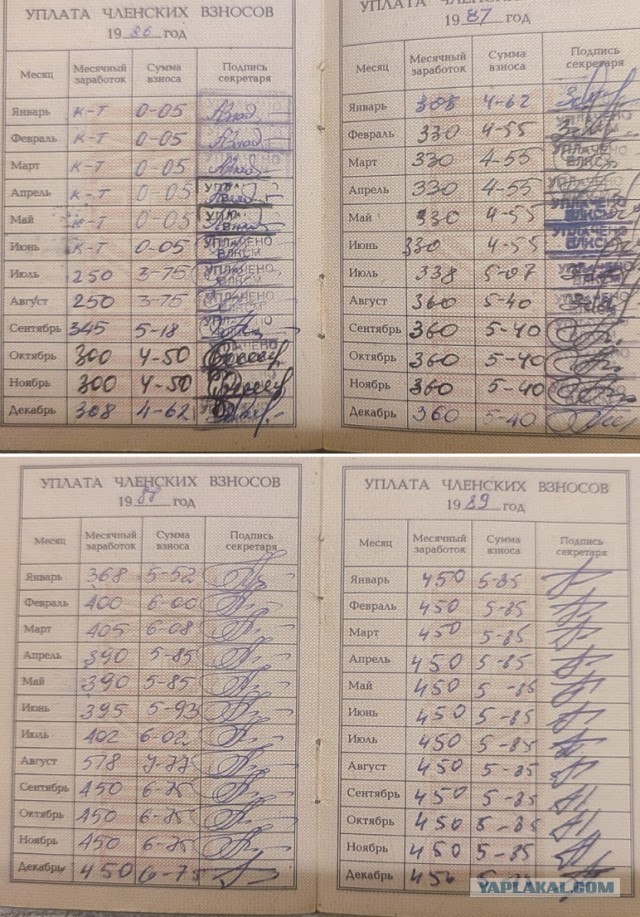 УПЛАТА ЧЛЕНСКИХ ВЗНОСОВ
1986 год
Месяц Месячный заработок Сумма взноса Подпись секретаря
Январь к-т 0-05
Февраль к-т 0-05
Март к-т 0-05
Апрель к-т 0-05
Май к-т 0-05
Июнь к-т 0-05 УПЛАЧЕНО ВЛКСМ
Июль 250 3-75 УПЛАЧЕНО ВЛКСМ
Август 250 3-75 УПЛАЧЕНО ВЛКСМ
Сентябрь 345 5-18
Октябрь 300 4-50
Ноябрь 300 4-50
Декабрь 308 4-62
УПЛАТА ЧЛЕНСКИХ ВЗНОСОВ
1987 год
Месяц Месячный заработок Сумма взноса Подпись секретаря
Январь 308 4-62
Февраль 330 4-55
Март 330 4-55 УПЛАЧЕНО ВЛКСМ
Апрель 330 4-55
Май 330 4-55 УПЛАЧЕНО ВЛКСМ
Июнь 330 4-55 УПЛАЧЕНО ВЛКСМ
Июль 338 5-07
Август 360 5-40
Сентябрь 360 5-40
Октябрь 360 5-40
Ноябрь 360 5-40
Декабрь 360 5-40
УПЛАТА ЧЛЕНСКИХ ВЗНОСОВ
1988 год
Месяц Месячный заработок Сумма взноса Подпись секретаря
Январь 368 5-52
Февраль 400 6-00
Март 405 6-08
Апрель 390 5-85
Май 390 5-85
Июнь 395 5-93
Июль 402 6-02
Август 518 7-77
Сентябрь 450 6-75
Октябрь 450 6-75
Ноябрь 450 6-75
Декабрь 450 6-75
УПЛАТА ЧЛЕНСКИХ ВЗНОСОВ
1989 год
Месяц Месячный заработок Сумма взноса Подпись секретаря
Январь 450 5-85
Февраль 450 5-85
Март 450 5-85
Апрель 450 5-85
Май 450 5-85
Июнь 450 5-85
Июль 450 5-85
Август 450 5-85
Сентябрь 450 5-85
Октябрь 450 5-85
Ноябрь 450 5-85
Декабрь 450
YAPLAKAL.COM